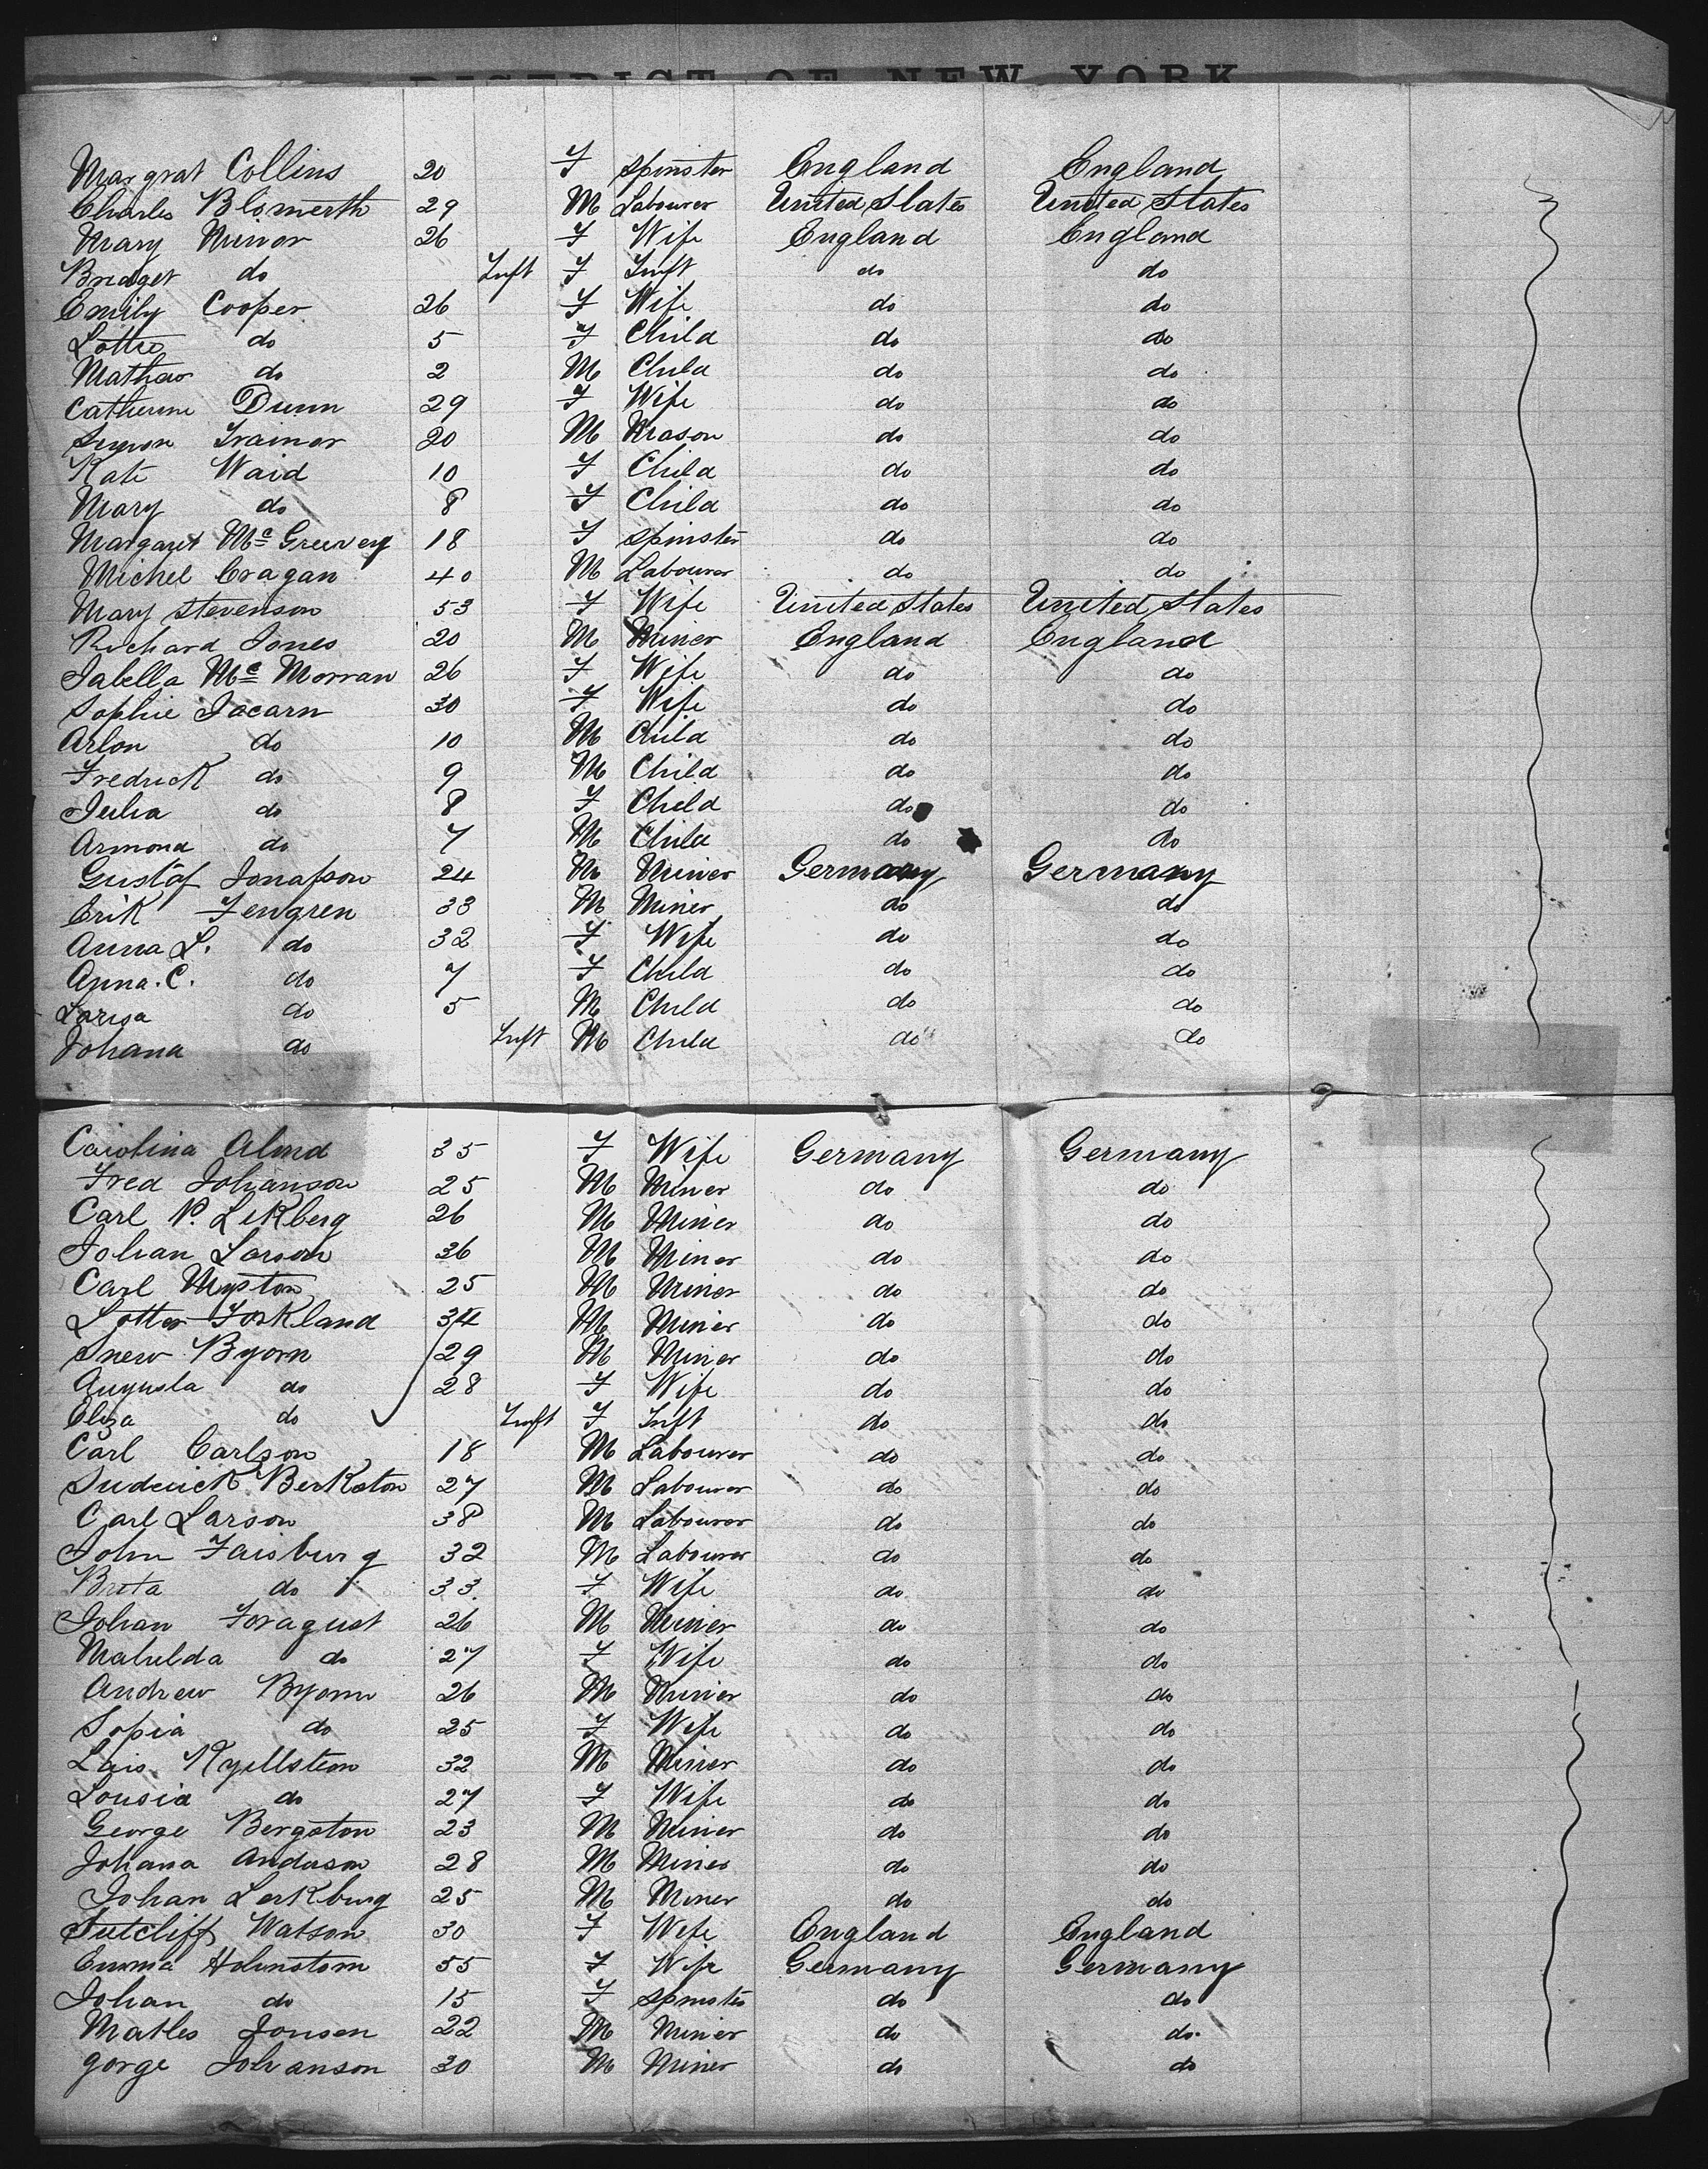 DISTRICT OF NEW YORK
Margrat Collins 20 F Spinster England England
Charles Blomerth 29 M Labourer United States United States
Mary Minor 26 F Wife England England
Bridget do Inft F Inft do do
Emily Cooper 26 F Wife do do
Lottie do 5 F Child do do
Mathew do 2 M Child do do
Catherine Dunn 29 F Wife do do
Simon Trainor 20 M Mason do do
Kate Waid 10 F Child do do
Mary do 8 F Child do do
Margaret Mc Greevey 18 F Spinster do do
Michel Cragan 40 M Labourer do do
Mary Stevenson 53 F Wife United States United States
Richard Jones 20 M Miner England England
Isabella Mc Morran 26 F Wife do do
Sophie Jacarn 30 F Wife do do
Arlon do 10 M Child do do
Fredrick do 9 M Child do do
Julia do 8 F Child do do
Armond do 7 M Child do do
Gustof Jonasson 24 M Miner Germany Germany
Erik Fengren 33 M Miner do do
Anna L. do 32 F Wife do do
Anna. C. do 7 F Child do do
Larisa do 5 M Child do do
Johana do Inft M Child do do
Carolina Almd 35 F Wife Germany Germany
Fred Johanson 25 M Miner do do
Carl P. Lekberg 26 M Miner do do
Johan Larson 36 M Miner do do
Carl Myston 25 M Miner do do
Lotter Forkland 34 M Miner do do
Snew Byorn 29 M Miner do do
Augusta do 28 F Wife do do
Elisa do Inft F Inft do do
Carl Carlson 18 M Labourer do do
Berkston 27 M Labourer do do
Carl Larson 38 M Labourer do do
John Faisburg 32 M Labourer do do
Brita do 33 F Wife do do
Johan Foragust 26 M Miner do do
Mahelda do 27 F Wife do do
Andrew Byorn 26 M Miner do do
Sopia do 25 F Wife do do
Lais Kyellsteon 32 M Miner do do
Lousia do 27 F Wife do do
George Bergston 23 M Miner do do
Johana Anderson 28 M Miner do do
Johan Lerkburg 25 M Miner do do
Sutcliff Watson 30 F Wife England England
Emma Holmstom 55 F Wife Germany Germany
Johan do 15 F Spinster do do
Matles Jonsen 22 M Miner do do
Gorge Johanson 30 M Miner do do